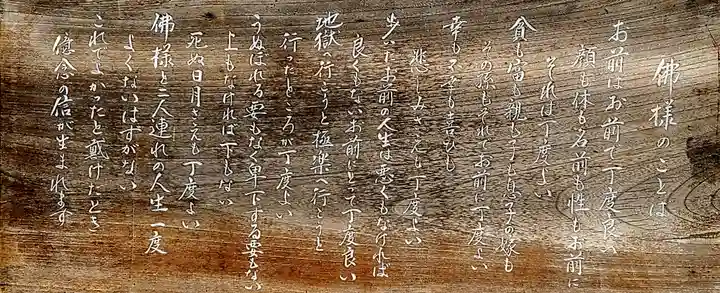 佛様のことば
お前はお前で丁度良い
顔も体も名前も性もお前に
それは丁度よい
貧も富も親も子も息子の嫁も
その孫もそれでお前に丁度よい
幸も不幸も喜びも
悲しみさえも丁度よい
歩いたお前の人生は悪くもなければ
良くもないお前にとって丁度良い
地獄へ行こうと極楽へ行こうと
行ったところが丁度よい
うぬぼれる要もなく卑下する要もない
上もなければ下もない
死ぬ日月さえも丁度よい
佛様と二人連れの人生丁度
よくないはずがない
これでよかったと戴けたとき
憶念の信が生まれます